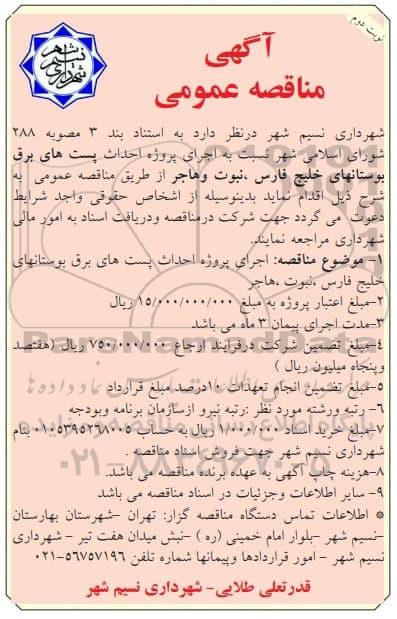 نوبت دوم
شهرداری نسیم شهر
آگهی
مناقصه عمومی
شهرداری نسیم شهر درنظر دارد به استناد بند ۳ مصوبه ۲۸۸
شورای اسلامی شهر نسبت به اجرای پروژه احداث پست های برق
بوستانهای خلیج فارس ،نبوت وهاجر از طریق مناقصه عمومی به
شرح ذیل اقدام نماید بدینوسیله از اشخاص حقوقی واجد شرایط
دعوت می گردد جهت شرکت درمناقصه ودریافت اسناد به امور مالی
شهرداری مراجعه نمایند.
۱- موضوع مناقصه: اجرای پروژه احداث پست های برق بوستانهای
خلیج فارس ،نبوت ،هاجر
۲-مبلغ اعتبار پروژه به مبلغ ۱۵/۰۰۰/۰۰۰/۰۰۰ ریال
۳-مدت اجرای پیمان ۳ ماه می باشد
۴-مبلغ تضمین شرکت درفرایند ارجاع ۷۵۰/۰۰۰/۰۰۰ ریال (هفتصد
وپنجاه میلیون ریال )
۵-مبلغ تضمین انجام تعهدات ۱۰درصد مبلغ قرارداد
۶- رتبه ورشته مورد نظر :رتبه نیرو ازسازمان برنامه وبودجه
۷-مبلغ خرید اسناد ۱/۰۰۰/۰۰۰ ریال به حساب ۰۱۰۵۳۹۵۲۶۸۰۰۵ بنام
شهرداری نسیم شهر جهت فروش اسناد مناقصه .
۸-هزینه چاپ آگهی به عهده برنده مناقصه می باشد.
۹- سایر اطلاعات وجزئیات در اسناد مناقصه می باشد
* اطلاعات تماس دستگاه مناقصه گزار: تهران -شهرستان بهارستان
-نسیم شهر -بلوار امام خمینی (ره ) -نبش میدان هفت تیر - شهرداری
نسیم شهر - امور قراردادها وپیمانها شماره تلفن ۵۶۷۵۷۱۹۶-۰۲۱
قدرتعلی طلایی- شهرداری نسیم شهر
ParsNamadData
۰۲۱-۸۸۳۴۹۶۷۰-۵